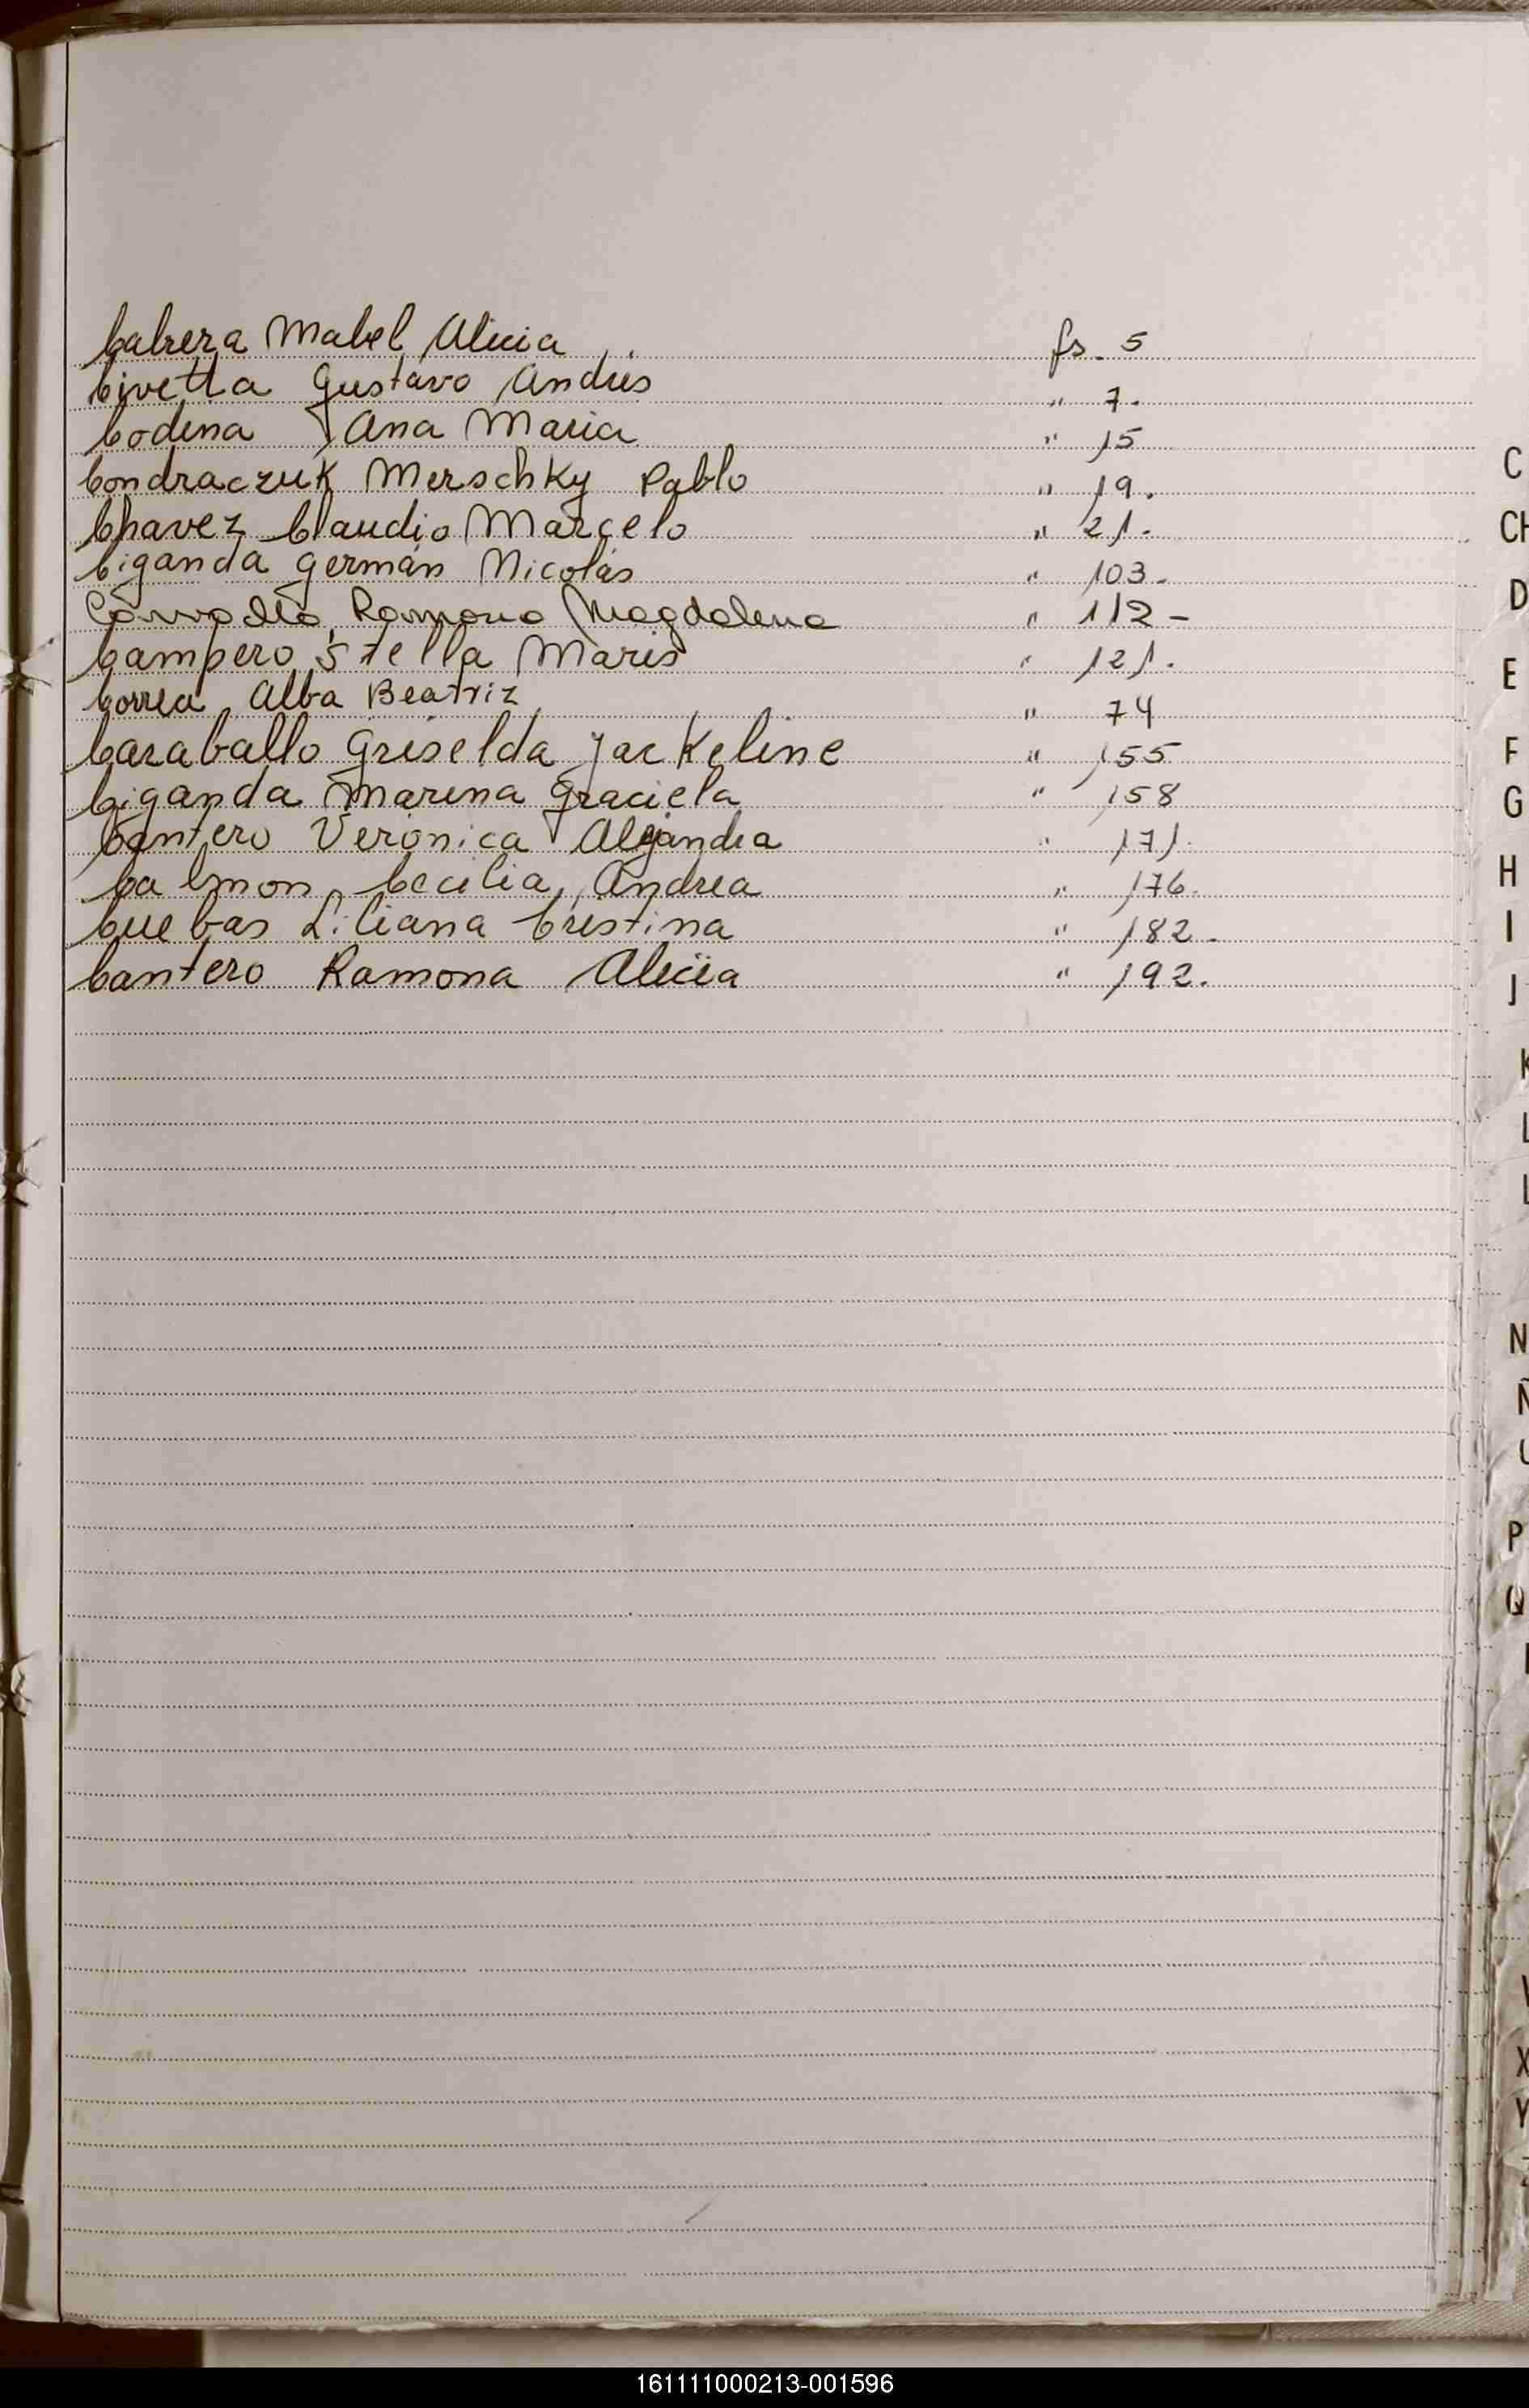 Cabrera Mabel Alicia fs. 5
Civetta Gustavo Andrés " 7.
Codena Ana Maria " 15
Condraczuk Merschky Pablo " 19.
Chavez Claudio Marcelo " 21.
Ciganda Germán Nicolás " 103.
Carvallo Ramona Magdalena " 112-
Campero Stella Maris " 121.
Correa Alba Beatriz " 74
Caraballo Griselda Jackeline " 155
Ciganda Marina Graciela " 158
Cantero Verónica Alejandra " 171.
Calmon Cecilia Andrea " 176.
Cuebas Liliana Cristina " 182.
Cantero Ramona Alicia " 192.
C
CH
D
E
F
G
H
I
J
K
L
L
N
Ñ
P
Q
X
Y
161111000213-001596